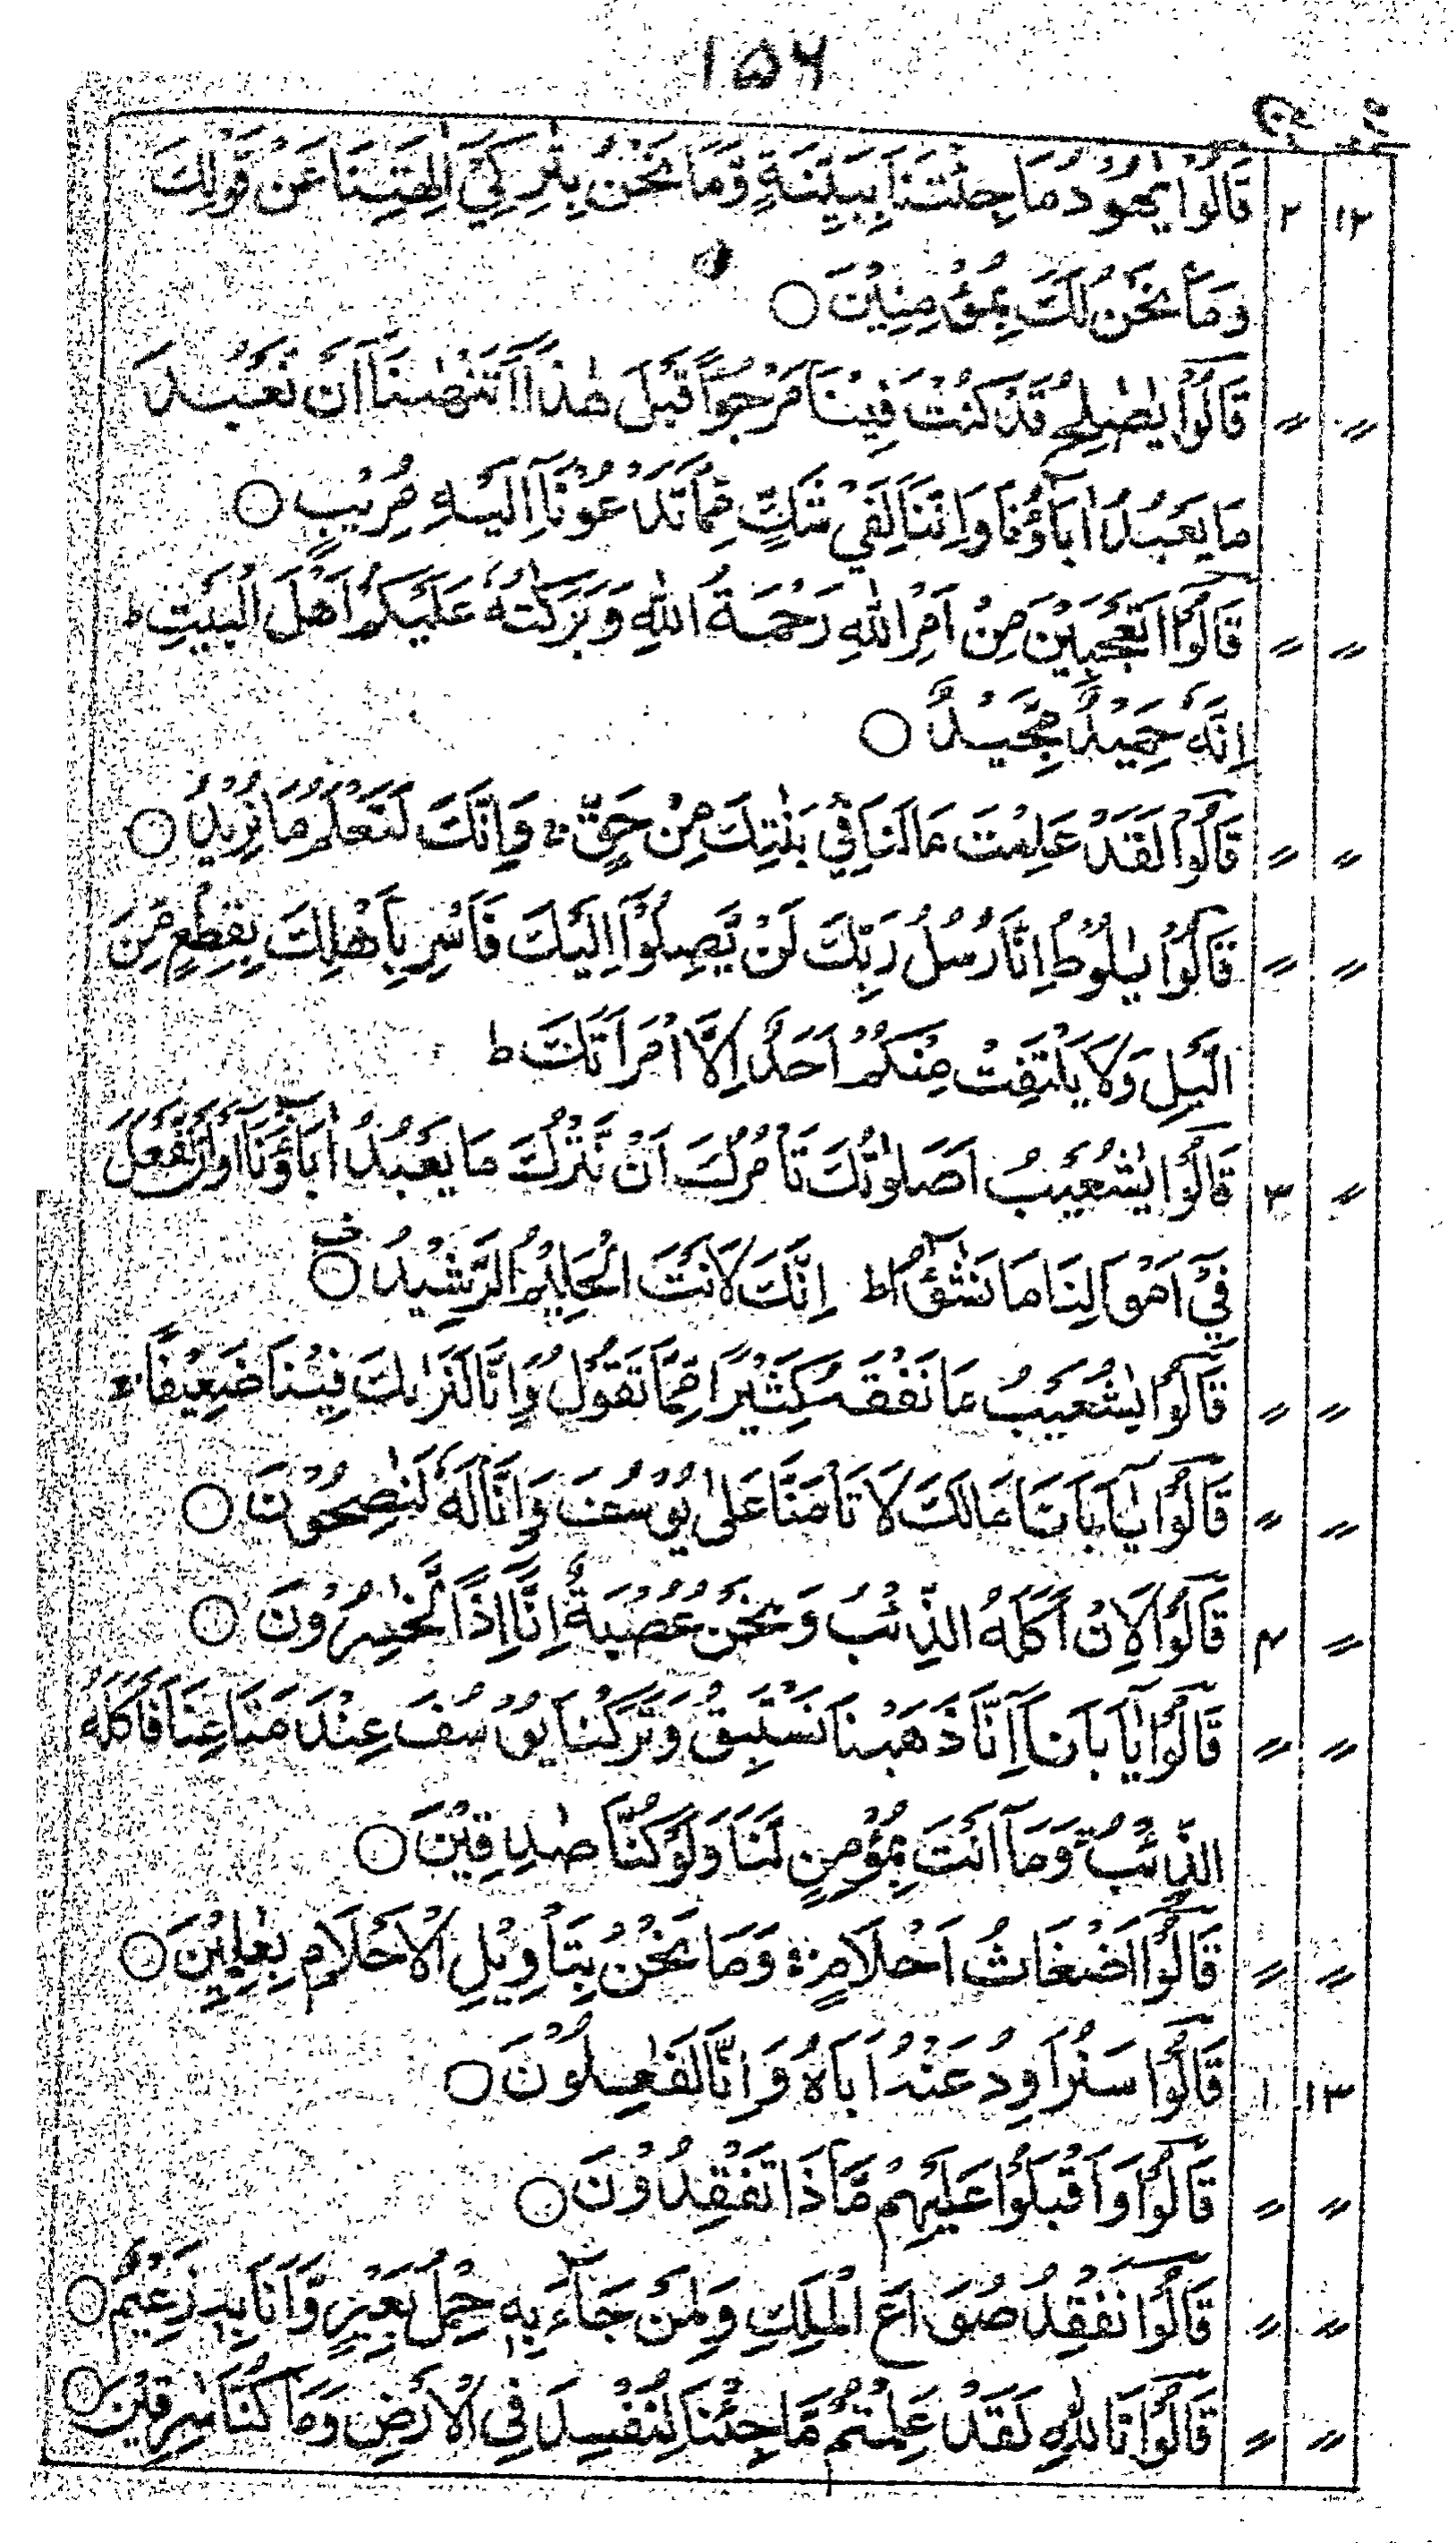 ۱۵۶
۱۲ ۲ قَالُوْا يٰهُوْدُ مَا جِئْتَنَا بِبَيِّنَةٍ وَّمَا نَحْنُ بِتَارِكِيْٓ اٰلِهَتِنَا عَنْ قَوْلِكَ
وَمَا نَحْنُ لَكَ بِمُؤْمِنِيْنَ ○
〃 〃 قَالُوْا يٰصٰلِحُ قَدْ كُنْتَ فِيْنَا مَرْجُوًّا قَبْلَ هٰذَآ اَتَنْهٰىنَآ اَنْ نَّعْبُدَ
مَا يَعْبُدُ اٰبَآؤُنَا وَاِنَّنَا لَفِيْ شَكٍّ مِّمَّا تَدْعُوْنَآ اِلَيْهِ مُرِيْبٍ ○
〃 〃 قَالُوْٓا اَتَعْجَبِيْنَ مِنْ اَمْرِ اللّٰهِ رَحْمَةُ اللّٰهِ وَبَرَكٰتُهٗ عَلَيْكُمْ اَهْلَ الْبَيْتِ ط
اِنَّهٗ حَمِيْدٌ مَّجِيْدٌ ○
〃 〃 قَالُوْا لَقَدْ عَلِمْتَ مَا لَنَا فِيْ بَنٰتِكَ مِنْ حَقٍّ ۚ وَاِنَّكَ لَتَعْلَمُ مَا نُرِيْدُ ○
〃 〃 قَالُوْا يٰلُوْطُ اِنَّا رُسُلُ رَبِّكَ لَنْ يَّصِلُوْٓا اِلَيْكَ فَاَسْرِ بِاَهْلِكَ بِقِطْعٍ مِّنَ
الَّيْلِ وَلَا يَلْتَفِتْ مِنْكُمْ اَحَدٌ اِلَّا امْرَاَتَكَ ط
〃 ۳ قَالُوْا يٰشُعَيْبُ اَصَلٰوتُكَ تَاْمُرُكَ اَنْ نَّتْرُكَ مَا يَعْبُدُ اٰبَآؤُنَآ اَوْ اَنْ نَّفْعَلَ
فِيْٓ اَمْوَالِنَا مَا نَشٰٓؤُا ط اِنَّكَ لَاَنْتَ الْحَلِيْمُ الرَّشِيْدُ ○
〃 〃 قَالُوْا يٰشُعَيْبُ مَا نَفْقَهُ كَثِيْرًا مِّمَّا تَقُوْلُ وَاِنَّا لَنَرٰىكَ فِيْنَا ضَعِيْفًا ۚ
〃 〃 قَالُوْا يٰٓاَبَانَا مَالَكَ لَا تَاْمَنَّا عَلٰى يُوْسُفَ وَاِنَّا لَهٗ لَنٰصِحُوْنَ ○
〃 ۴ قَالُوْا لَئِنْ اَكَلَهُ الذِّئْبُ وَنَحْنُ عُصْبَةٌ اِنَّآ اِذًا لَّخٰسِرُوْنَ ○
〃 〃 قَالُوْا يٰٓاَبَانَآ اِنَّا ذَهَبْنَا نَسْتَبِقُ وَتَرَكْنَا يُوْسُفَ عِنْدَ مَتَاعِنَا فَاَكَلَهُ
الذِّئْبُ وَمَآ اَنْتَ بِمُؤْمِنٍ لَّنَا وَلَوْ كُنَّا صٰدِقِيْنَ ○
〃 〃 قَالُوْٓا اَضْغَاثُ اَحْلَامٍ ۚ وَمَا نَحْنُ بِتَاْوِيْلِ الْاَحْلَامِ بِعٰلِمِيْنَ ○
۱۳ ۱ قَالُوْا سَنُرَاوِدُ عَنْهُ اَبَاهُ وَاِنَّا لَفٰعِلُوْنَ ○
〃 〃 قَالُوْا وَاَقْبَلُوْا عَلَيْهِمْ مَّا ذَا تَفْقِدُوْنَ ○
〃 〃 قَالُوْا نَفْقِدُ صُوَاعَ الْمَلِكِ وَلِمَنْ جَآءَ بِهٖ حِمْلُ بَعِيْرٍ وَّاَنَا بِهٖ زَعِيْمٌ ○
〃 〃 قَالُوْا تَاللّٰهِ لَقَدْ عَلِمْتُمْ مَّا جِئْنَا لِنُفْسِدَ فِى الْاَرْضِ وَمَا كُنَّا سٰرِقِيْنَ ○